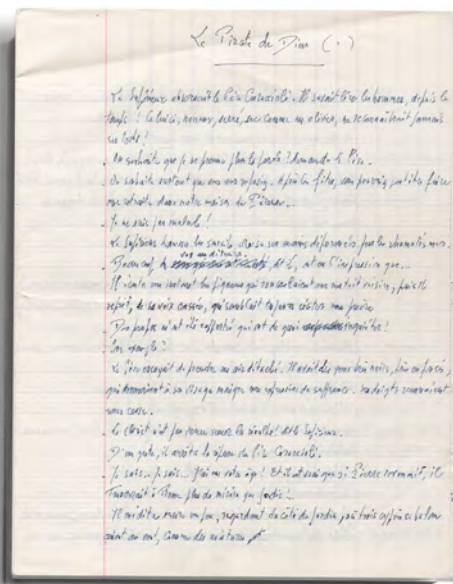 Le Pirate de Dieu (1)
Le Supérieur observait le Père Caraccioli. Il savait lire les hommes, depuis le
temps ! Celui-ci, nerveux, serré, sec comme un olivier, ne reconnaîtrait jamais
ses torts !
- On souhaite que je ne prenne plus la parole ? demanda le Père.
- On souhaite surtout que vous vous reposiez. Après les fêtes, vous pourriez peut-être faire
une retraite dans notre maison de
- Je ne suis pas malade !
Le Supérieur haussa les sourcils, croisa ses mains déformées par les rhumatismes.
- Beaucoup de vos auditeurs, dit-il, ont l'impression que...
Il écouta un instant les pigeons qui roucoulaient sur un toit voisin, puis il
reprit, de sa voix cassée, qui semblait toujours réciter une prière
- Des propos m'ont été rapportés qui ont de quoi inquiéter !
- Par exemple ?
Le Père essayait de prendre un air détaché. Il avait des yeux très noirs, enfoncés,
qui donnaient à son visage maigre une expression de souffrance. Ses doigts
sans cesse.
- Le Christ n'est pas venu semer la révolte ! dit le Supérieur.
D'un geste, il arrêta la réponse du Père Caraccioli.
- Je sais... Je sais... J'ai eu votre âge ! Et il est vrai que si Pierre revenait, il
trouverait à Rome plus de misère que jadis !...
Il médita encore un peu, regardant du côté du jardin, où trois cyprès se balan-
çaient au vent, comme des